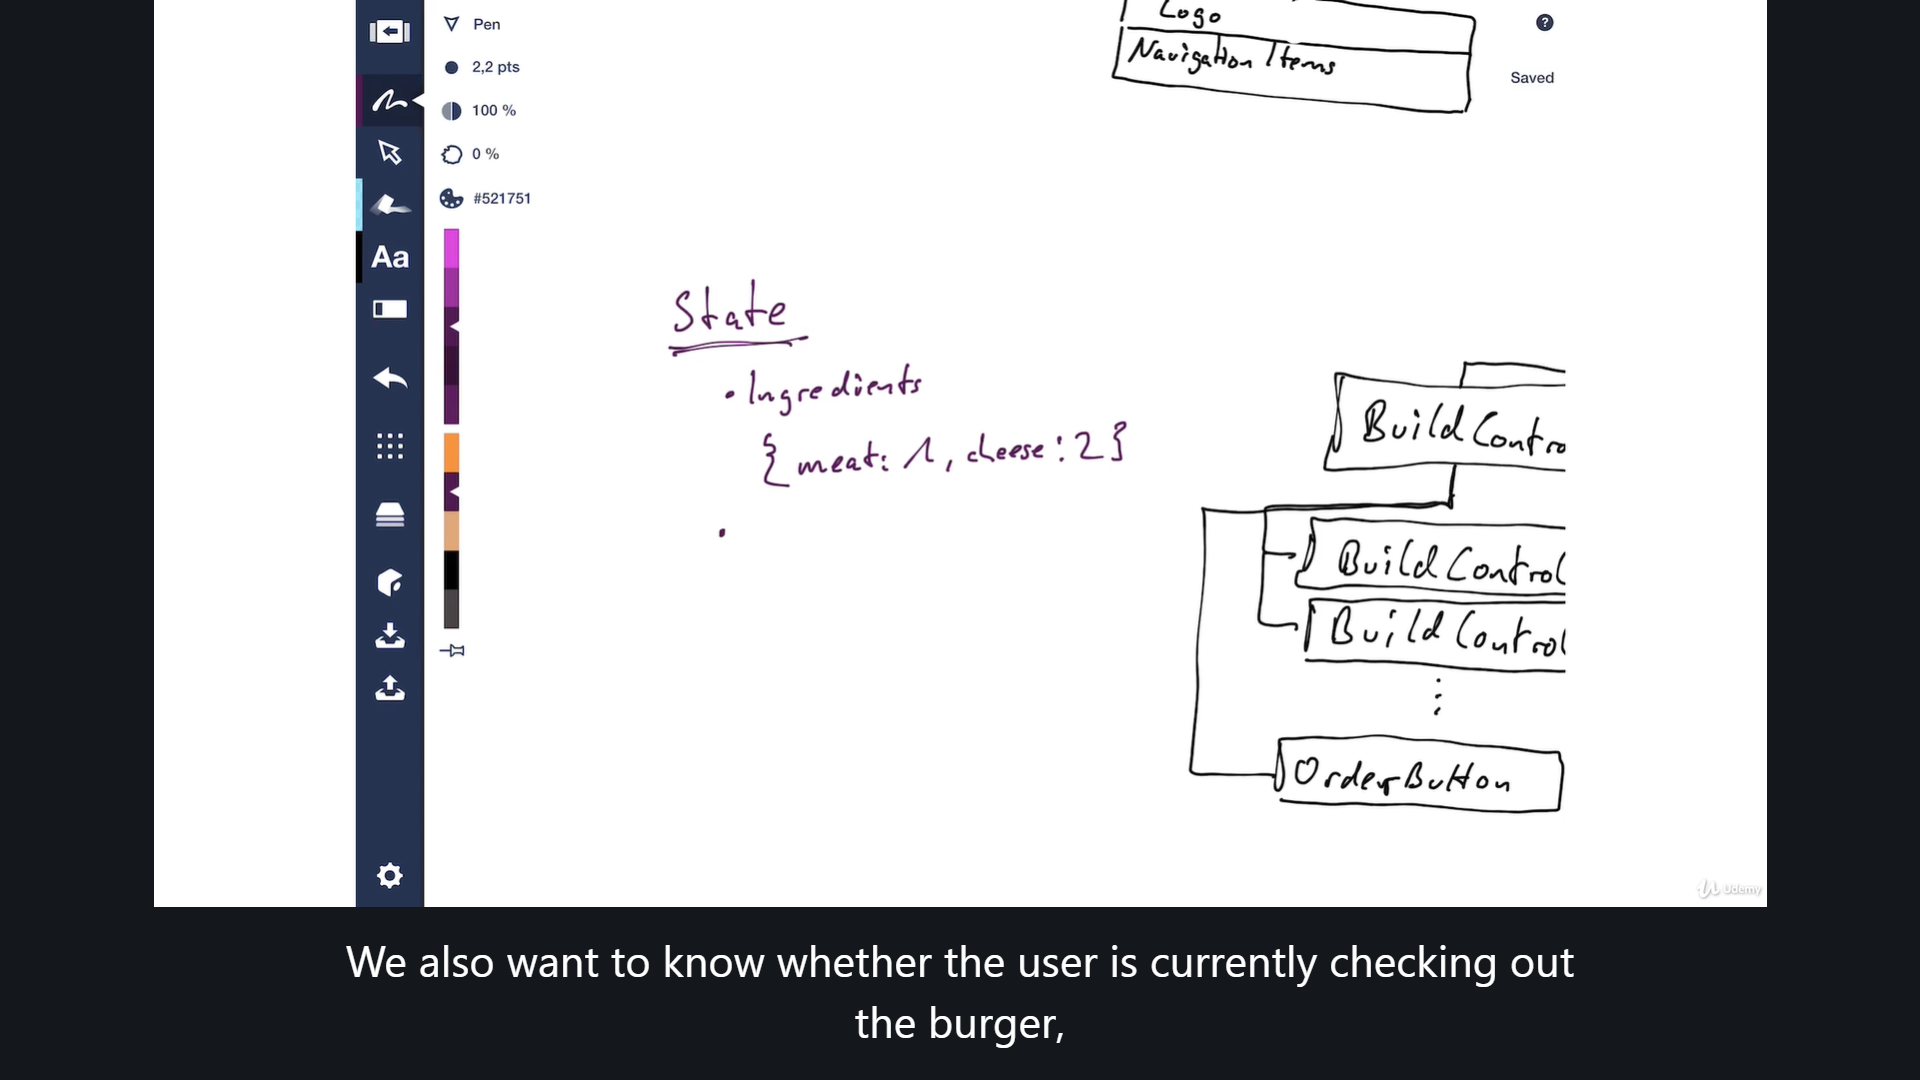 Pen
2,2 pts
100 %
0 %
#521751
Aa
Logo
Navigation Items
?
Saved
State
• Ingredients
{ meat: 1, cheese: 2 }
•
Build Contro
Build Control
Build Control
⋮
OrderButton
Udemy
We also want to know whether the user is currently checking out
the burger,